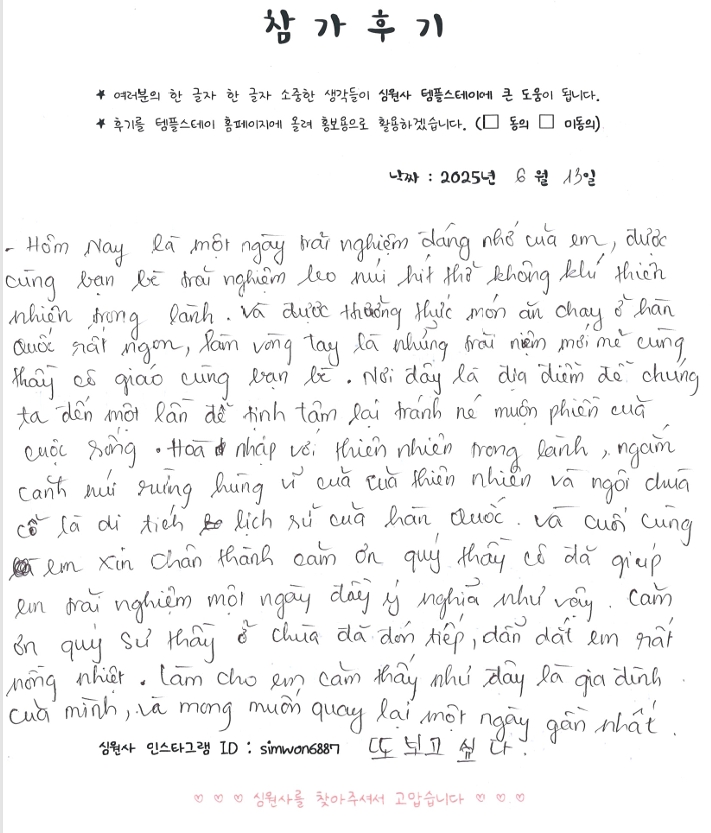 참가후기
★ 여러분의 한 글자 한 글자 소중한 생각들이 심원사 템플스테이에 큰 도움이 됩니다.
★ 후기를 템플스테이 홈페이지에 올려 홍보용으로 활용하겠습니다. (☐ 동의 ☐ 미동의)
날짜 : 2025년 6 월 13일
- Hôm Nay là một ngày trãi nghiệm đáng nhớ của em, được
cùng bạn bè trãi nghiệm leo núi hít thở không khí thiên
nhiên trong lành. và được thưởng thực món ăn chay ở hàn
Quốc rất ngon, làm vòng tay là những trãi niệm mới mẽ cùng
thầy cô giáo cùng bạn bè. Nơi đây là địa điểm để chúng
ta đến một lần để tịnh tâm lại tránh né muộn phiền của
cuộc sống. Hoà nhập với thiên nhiên trong lành, ngắm
cảnh núi rừng hùng vĩ của của thiên nhiên và ngôi chùa
cổ là di tích lịch sử của hàn Quốc. và cuối cùng
em xin chân thành cảm ơn quý thầy cô đã giúp
em trãi nghiệm một ngày đầy ý nghĩa như vậy. Cảm
ơn quý sư thầy ở chùa đã đón tiếp, dẫn dắt em rất
nồng nhiệt. Làm cho em cảm thấy như đây là gia đình
của mình, và mong muốn quay lại một ngày gần nhất.
또 보고 싶다.
심원사 인스타그램 ID : simwon6887
♡ ♡ ♡ 심원사를 찾아주셔서 고맙습니다 ♡ ♡ ♡